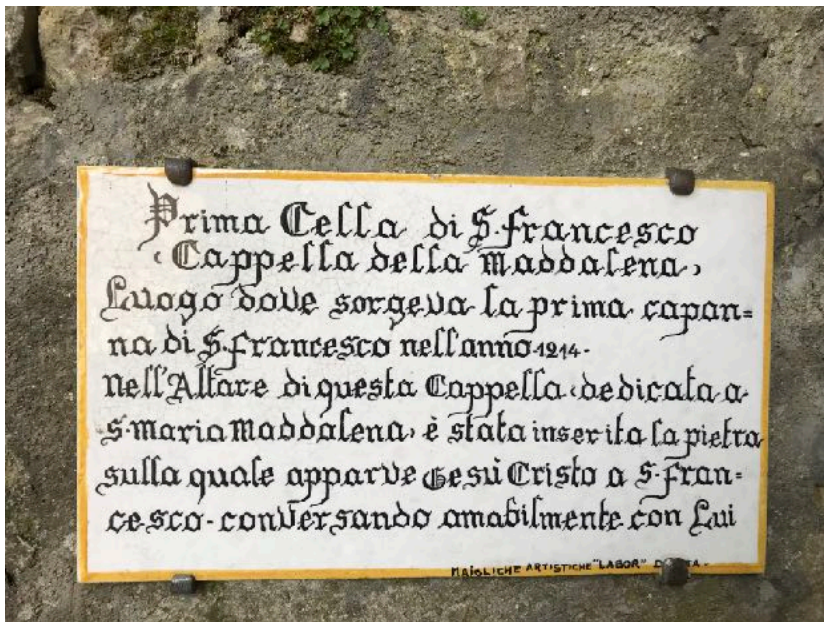 Prima Cella di S. Francesco
‹Cappella della Maddalena›
Luogo dove sorgeva la prima capan=
na di S. Francesco nell'anno 1214.
Nell'Altare di questa Cappella ‹dedicata a
S. Maria Maddalena› è stata inserita la pietra
sulla quale apparve Gesù Cristo a S. Fran=
cesco. conversando amabilmente con Lui
MAIOLICHE ARTISTICHE "LABOR"